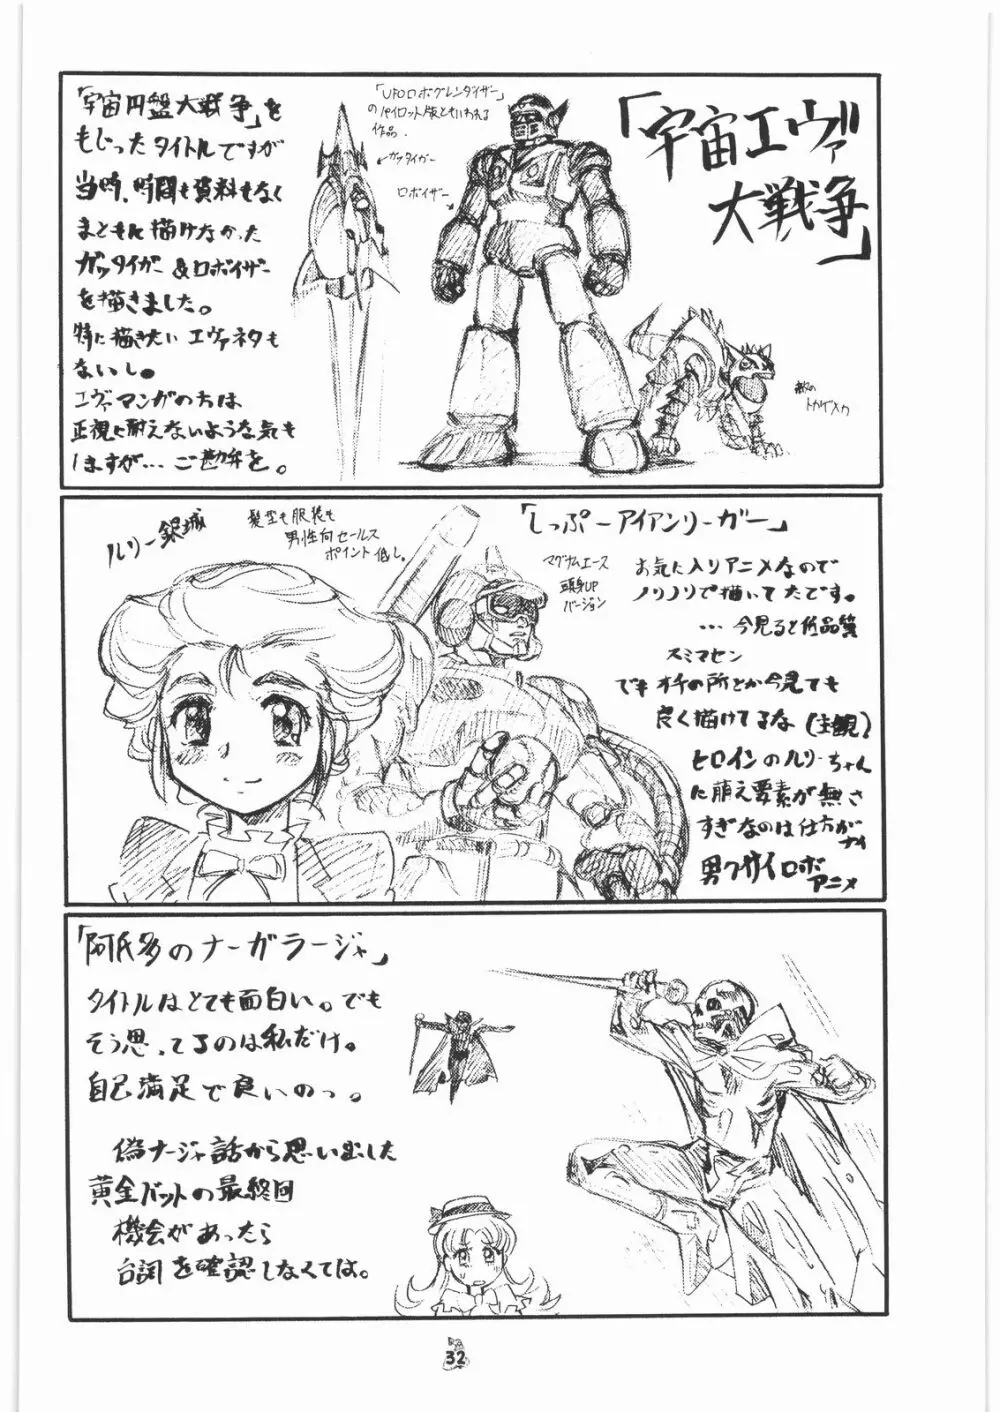 「宇宙エヴァ
大戦争」
「宇宙円盤大戦争」を
もじったタイトルですが
当時、時間も資料もなく
まともに描けなかった
ガッタイガー&ロボイザー
を描きました。
特に描きたい エヴァネタも
ないし。
エヴァマンガの方は
正視に耐えないような気も
しますが…ご勘弁を。
「UFOロボグレンダイザー」
のパイロット版ともいわれる
作品.
ガッタイガー
ロボイザー
敵の
トカゲメカ
「しっぷーアイアンリーガー」
ルリー銀城
髪型も服装も
男性向セールス
ポイント低し。
マグナムエース
頭身UP
バージョン
お気に入りアニメなので
ノリノリで描いてたです。
…今見ると低品質
スミマセン
でもオチの所とか今見ても
良く描けてるな(主観)
ヒロインのルリーちゃん
に萌え要素が無さ
すぎなのは仕方が
ナイ
男クサイロボ
アニメ
「阿氏多のナーガラージャ」
タイトルはとても面白い。でも
そう思ってるのは私だけ。
自己満足で良いのっ。
偽ナージャ話から思い出した
黄金バットの最終回
機会があったら
台詞を確認しなくては。
32